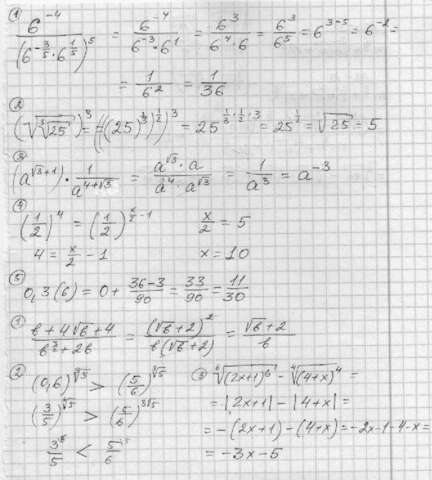 ①
6^{-4} / (6^{-3/5} · 6^{1/5})^5 = 6^{-4} / (6^{-3} · 6^1) = 6^3 / (6^4 · 6) = 6^3 / 6^5 = 6^{3-5} = 6^{-2} =
= 1/6^2 = 1/36
②
(√(∛25))^3 = (((25)^{1/3})^{1/2})^3 = 25^{1/3 · 1/2 · 3} = 25^{1/2} = √25 = 5
③
(a^{√3+1}) · 1/a^{4+√3} = (a^{√3} · a) / (a^4 · a^{√3}) = 1/a^3 = a^{-3}
④
(1/2)^4 = (1/2)^{x/2 - 1}   x/2 = 5
4 = x/2 - 1   x = 10
⑤
0,3(6) = 0 + (36-3)/90 = 33/90 = 11/30
①
(b + 4√b + 4) / (b^2 + 2b) = (√b + 2)^2 / b(√b + 2) = (√b + 2) / b
②
(0,6)^{∛5} > (5/6)^{∛5}
(3/5)^{∛5} > (5/6)^{3√5}
3/5 < 5/6
③ ⁶√((2x+1)^6) - ⁴√((4+x)^4) =
= |2x+1| - |4+x| =
= -(2x+1) - (4+x) = -2x-1-4-x =
= -3x-5